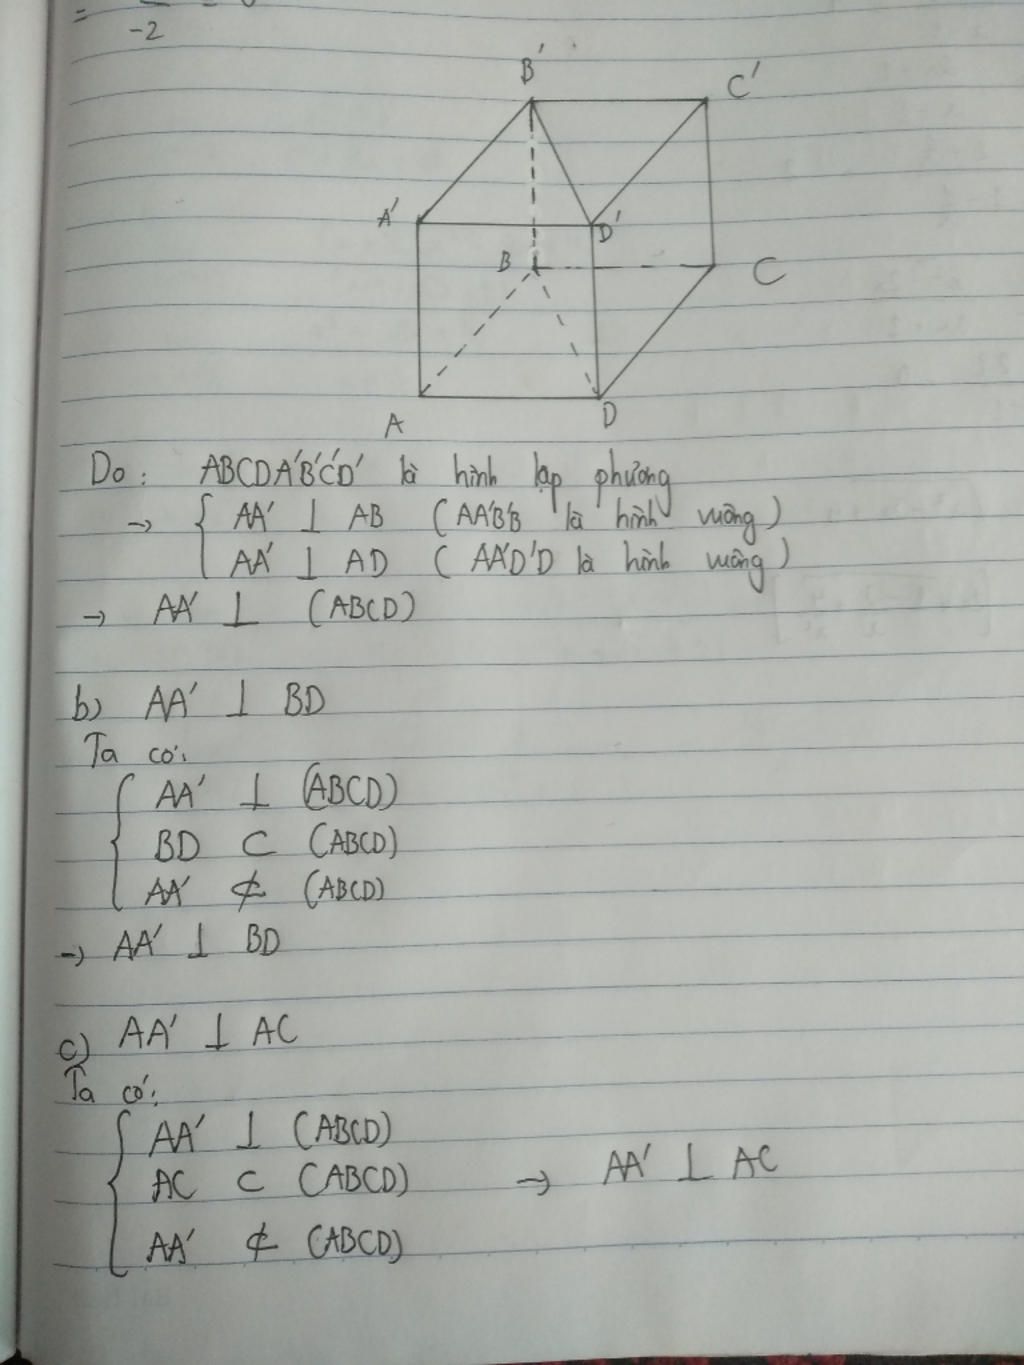 =
-2
B'
C'
A'
D'
B
C
A
D
Do: ABCDA'B'C'D' là hình lập phương
→ { AA' ⊥ AB (AA'B'B là hình vuông)
AA' ⊥ AD (AA'D'D là hình vuông)
→ AA' ⊥ (ABCD)
b) AA' ⊥ BD
Ta có:
{ AA' ⊥ (ABCD)
BD ⊂ (ABCD)
AA' ⊄ (ABCD)
→ AA' ⊥ BD
c) AA' ⊥ AC
Ta có:
{ AA' ⊥ (ABCD)
AC ⊂ (ABCD) → AA' ⊥ AC
AA' ⊄ (ABCD)